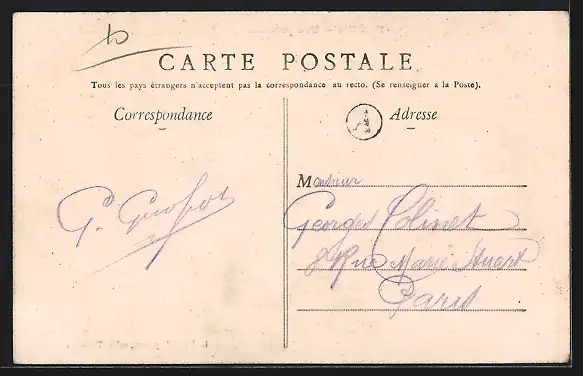 CARTE POSTALE
Tous les pays étrangers n'acceptent pas la correspondance au recto. (Se renseigner à la Poste).
Correspondance
Adresse
G.
Monsieur
Georges Colinet
Rue Marie Stuart
Paris